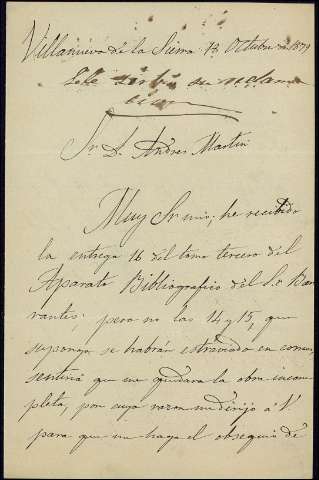 Villanueva de la Sierra 13 Octubre de 1879
Se le sirbió su reclama
cion
Sr. D. Andres Martin
Muy Sr mio; he recibido
la entrega 16 del tomo tercero del
Aparato Bibliografico del Sr Bar
rantes; pero no las 14 y 15, que
supongo se habrán estraviado en correos,
sentiria que me quedara la obra incom
pleta, por cuya razon me dirijo á V.
para que me haga el obsequio de